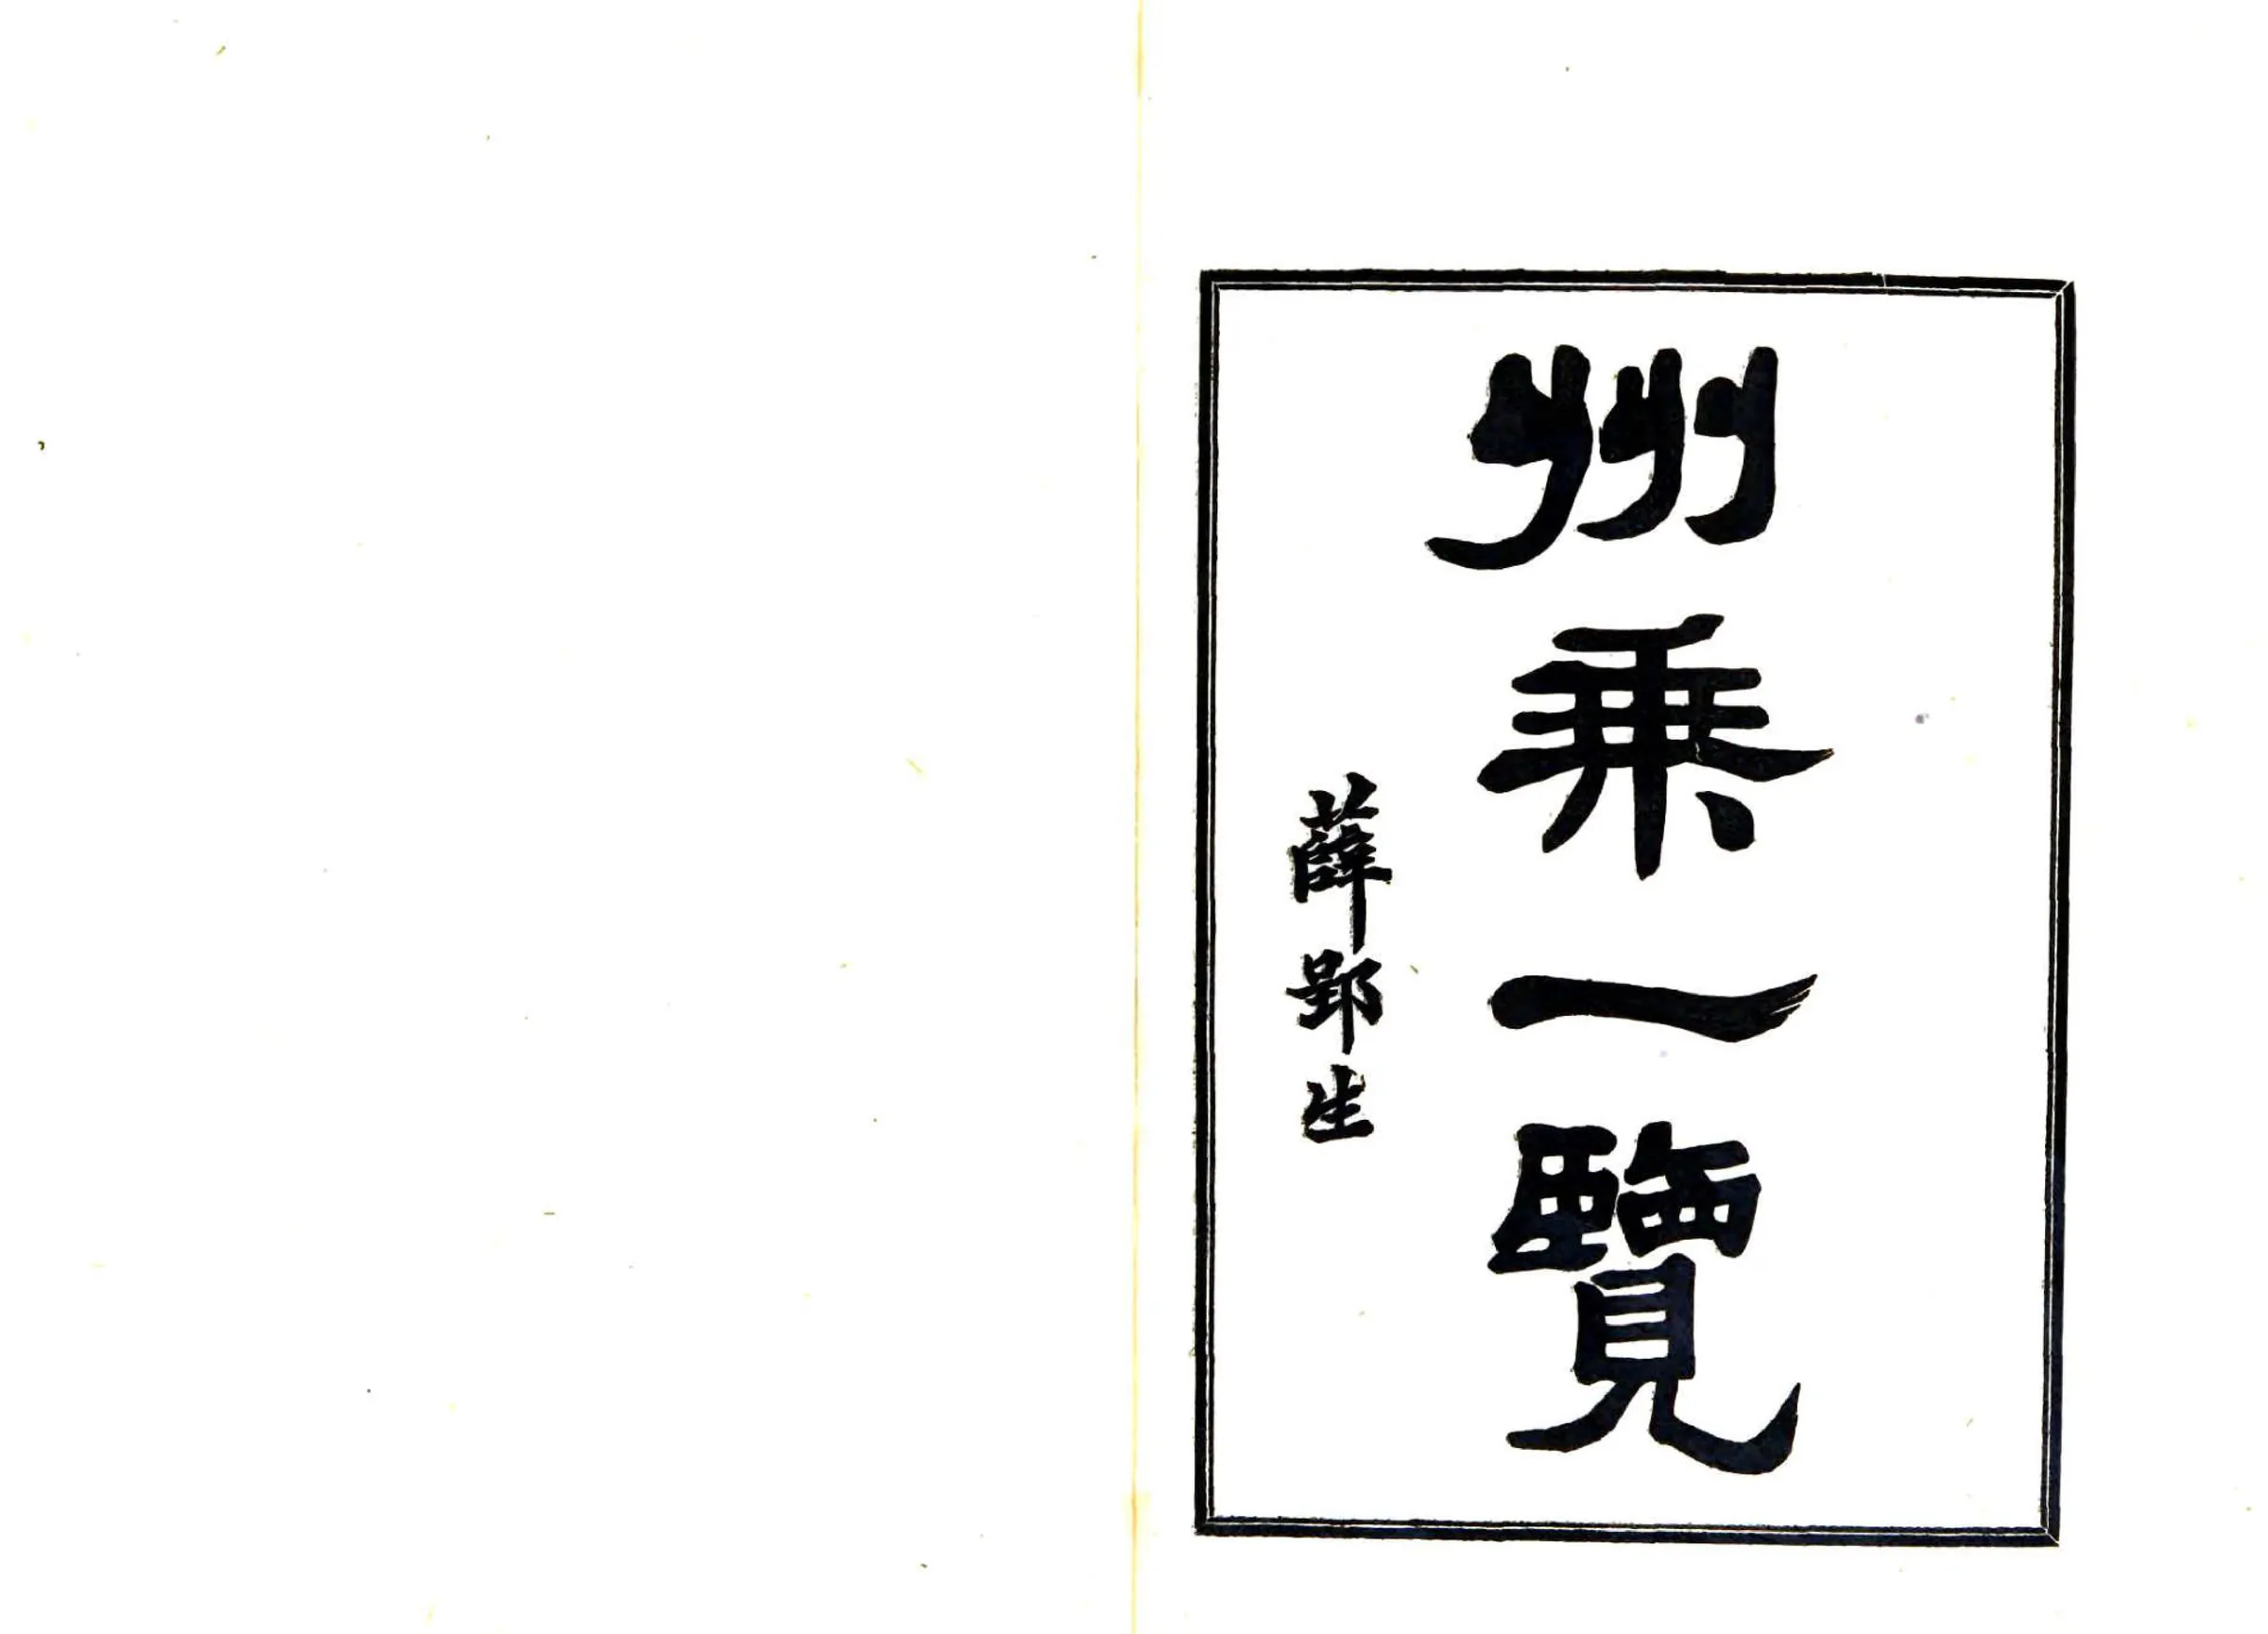 州乘一覽
薛郢生